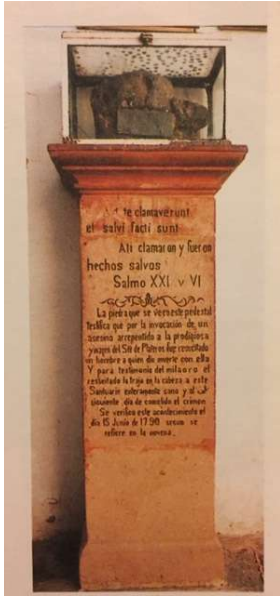 te clamaverunt
et salvi facti sunt
A ti clamaron y fueron
hechos salvos
Salmo XXI v VI
La piedra que se ve en este pedestal
testifica que por la invocación de un
asesino arrepentido a la prodigiosa
ymagen del Sr de Plateros fue resucitado
un hombre a quien dio muerte con ella
Y para testimonio del milagro el
resucitado la trajo en la cabeza a este
Santuario enteramente sano y al
siguiente día de cometido el crimen
Se verifico este acontecimiento el
día 15 Junio de 1790 segun se
refiere en la novena.